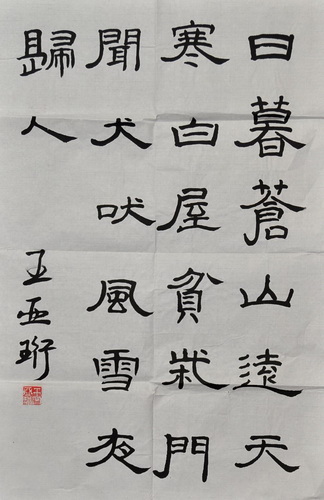 日暮蒼山遠天
寒白屋貧柴門
聞犬吠風雪夜
歸人
王亚珩